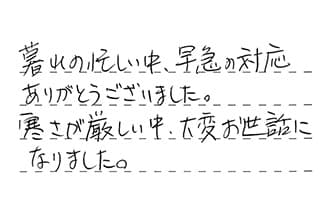 暮れの忙しい中、早急の対応
ありがとうございました。
寒さが厳しい中、大変お世話に
なりました。